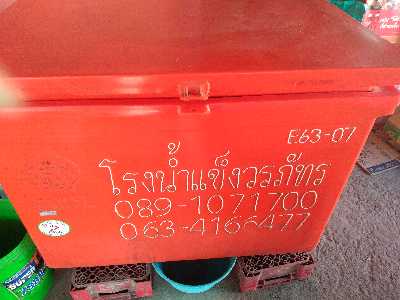 E.63-07
โรงน้ำแข็งวรภัทร
089-1071700
063-4166477